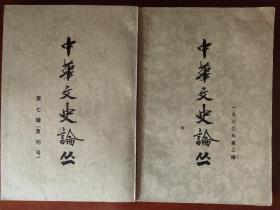 中華文史論丛
第七辑(复刊号)
中華文史論丛
一九八〇年第三辑